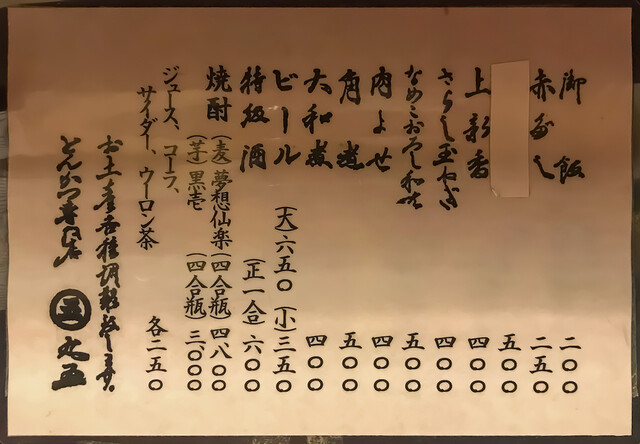 御飯 二〇〇
赤だし 二五〇
五〇〇
上新香 四〇〇
さらし玉ねぎ 四〇〇
なめこおろし和え 五〇〇
肉よせ 四〇〇
角煮 五〇〇
大和煮 四〇〇
ビール (大)六五〇 (小)三五〇
特級酒 (正一合)六〇〇
焼酎 (麦)夢想仙楽(四合瓶)四八〇〇
(芋)黒壱(四合瓶)三〇〇〇
ジュース、コーラ、
サイダー、ウーロン茶 各二五〇
お土産各種調製致します
とんかつ専門店 丸五